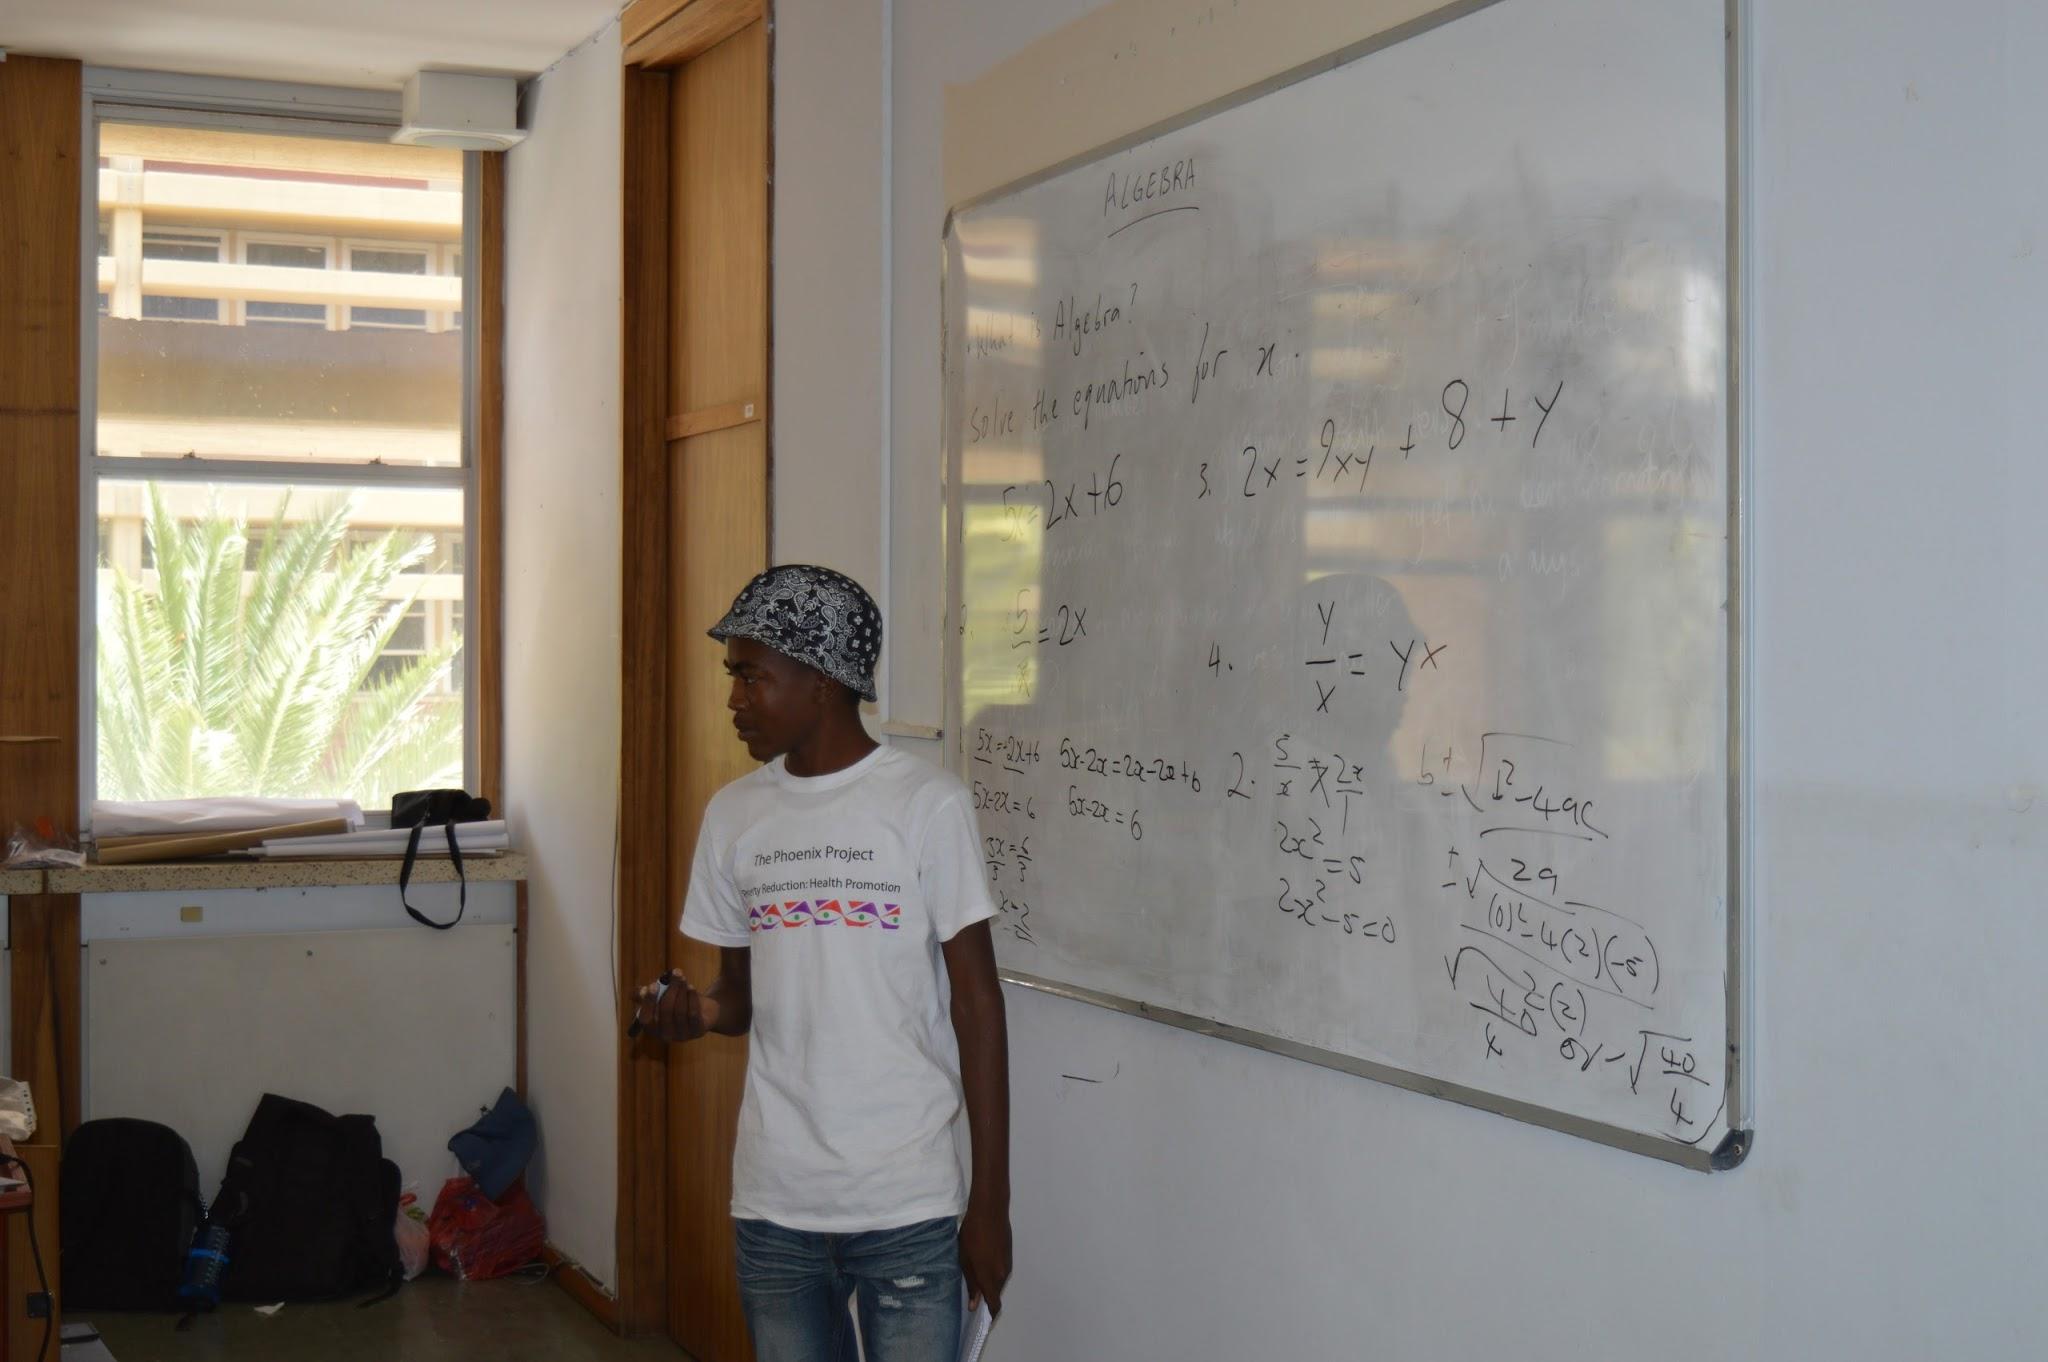 ALGEBRA
. What is Algebra?
Solve the equations for x.
1. 5x=2x+6
3. 2x=9xy + 8 + y
2. 5/x = 2x
4. y/x = yx
5x=2x+6
5x-2x=6
3x/3=6/3
x=2
5x-2x=2x-2x+6
5x-2x=6
2. 5/x = 2x/1
2x²=5
2x²-5=0
b ± √b²-4ac
2a
± √(0)²-4(2)(-5)
2(2)
√40
4
or -√40
4
The Phoenix Project
erty Reduction: Health Promotion